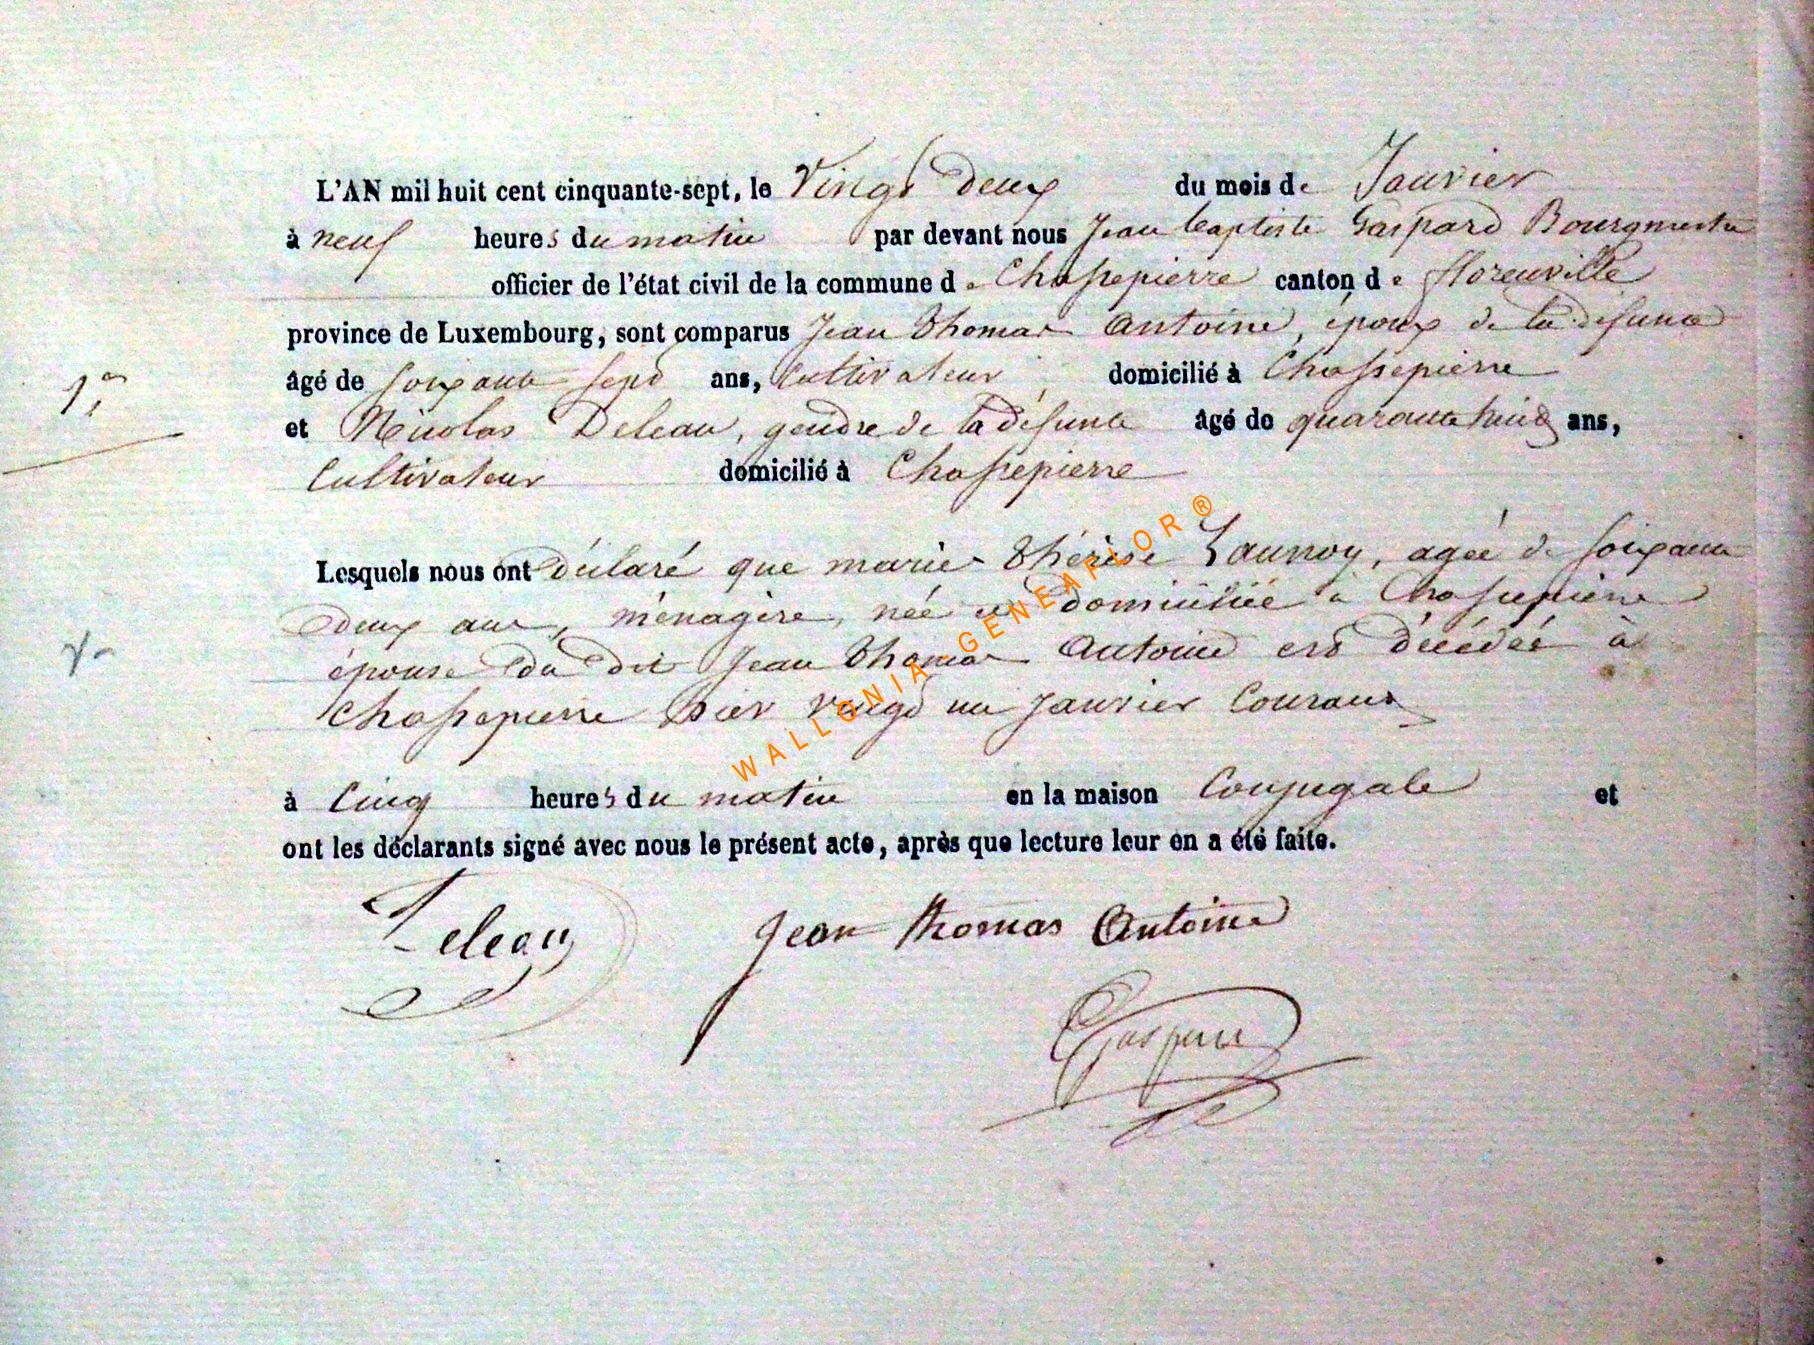 L'AN mil huit cent cinquante-sept, le Vingt deux du mois de Janvier
à neuf heures du matin par devant nous Jean baptiste Gaspard Bourgmestre
officier de l'état civil de la commune de Chassepierre canton de florenville
province de Luxembourg, sont comparus Jean Thomas Antoine, époux de la défunte
âgé de soixante sept ans, Cultivateur, domicilié à Chassepierre
1er
et Nicolas Deleau, gendre de la défunte âgé de quarante huit ans,
Cultivateur domicilié à Chassepierre
Lesquels nous ont déclaré que marie Thérèse Launoy, agée de soixante
deux ans, ménagère, née et domiciliée à Chassepierre
épouse du dit Jean Thomas Antoine est décédée à
Chassepierre hier vingt un Janvier Courant
à Cinq heures du matin en la maison Conjugale et
ont les déclarants signé avec nous le présent acte, après que lecture leur en a été faite.
Deleau Jean thomas Antoine
Gaspard
WALLONIA-GENEAFLOR®